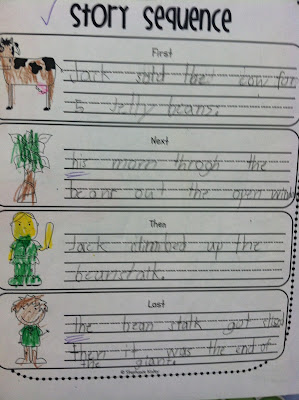 Story Sequence
First
Jack sold the cow for
5 Jelly beans.
Next
his mom throgh the
beans out the open
Then
Jack climbed up the
beanstalk.
Last
the bean stalk got
then it was the end of
the giant.